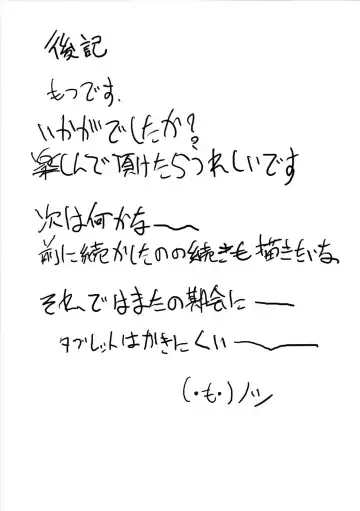 後記
もつです.
いかがでしたか?
楽しんで頂けたらうれしいです
次は何かな〜
前に続かしたのの続きも描きたいな
それではまたの機会に——
タブレットはかきにくい〜——
(・も・)ノシ